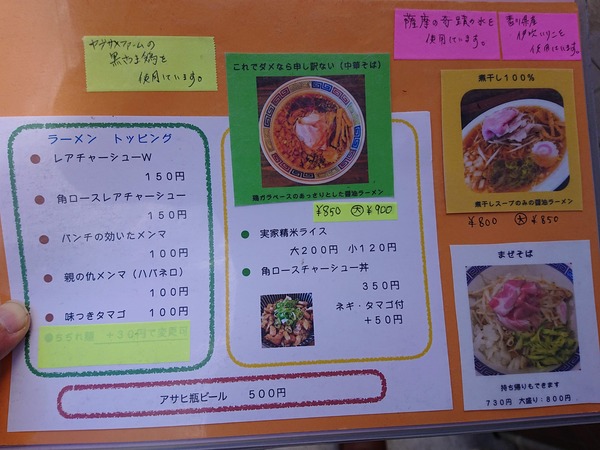 ヤブサメファームの
使用しています。
薩摩の奇跡の水を
使用しています。
香川県産
伊吹いりこを
使用しています。
これでダメなら申し訳ない（中華そば）
鶏ガラベースのあっさりとした醤油ラーメン
¥850 大 ¥900
煮干し100%
煮干しスープのみの醤油ラーメン
¥800 大 ¥850
まぜそば
持ち帰りもできます
730円 大盛り：800円
ラーメン トッピング
レアチャーシューW
150円
角ロースレアチャーシュー
150円
パンチの効いたメンマ
100円
親の仇メンマ（ハバネロ）
100円
味つきタマゴ 100円
ちぢれ麺 +30円で変更可
実家精米ライス
大200円 小120円
角ロースチャーシュー丼
350円
ネギ・タマゴ付
+50円
アサヒ瓶ビール 500円